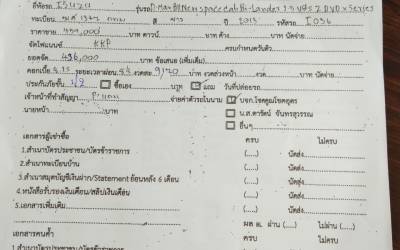 ยี่ห้อรถ ISUZU รุ่นรถ D-Max All New spacecab Hi-Lander 2 DVD x-Series
ทะเบียน สี ขาว ปี 2013 รหัสรถ I036
ราคาขาย 499,000 บาท ดาวน์ บาท ค้าง บาท นัดจ่าย
จัดไฟแนนซ์ KKP ครบกำหนดวันที่
ยอดจัด 496,000 บาท ข้อเสนอ (เพิ่มเติม)
ดอกเบี้ย ระยะเวลาผ่อน งวดละ 9120 งวดล่วงหน้า งวด บาท นัดจ่าย
ประกันภัยชั้น ซื้อเอง บาท แถม วันที่ปล่อยรถ
เจ้าหน้าที่ทำสัญญา จ่ายค่าตัวรถในนาม บจก.โชคคูณโชคออโต
นายหน้า บาท น.ส.ดารัตน์ จันทรสุวรรณ
อื่นๆ
เอกสารผู้เช่าซื้อ ครบ ไม่ครบ
1.สำเนาบัตรประชาชน/บัตรข้าราชการ (....) (....) นัดส่ง
2.สำเนาทะเบียนบ้าน (....) (....) นัดส่ง
3.สำเนาสมุดบัญชีเงินฝาก/Statement ย้อนหลัง 6 เดือน (....) (....) นัดส่ง
4.หนังสือรับรองเงินเดือน/สลิปเงินเดือน (....) (....) นัดส่ง
5.เอกสารเพิ่มเติม (....) (....) นัดส่ง
ผล ผ่าน (....) ไม่ผ่าน (....)
เอกสารคนค้ำ ครบ ไม่ครบ
1.สำเนาบัตรประชาชน/บัตรข้าราชการ